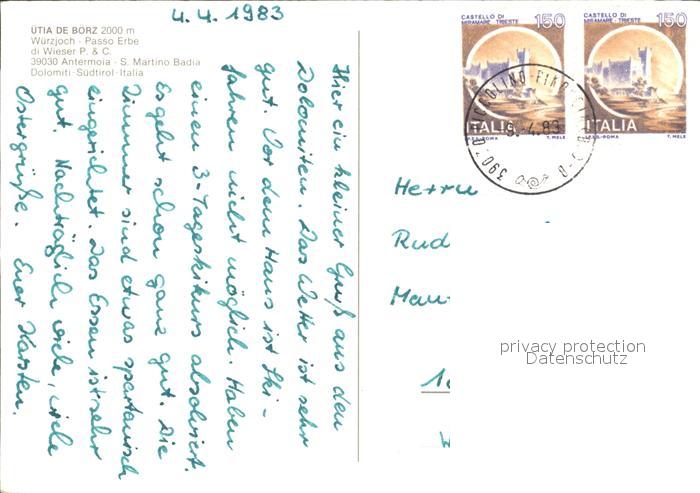 4.4.1983
ÜTIA DE BÖRZ 2000 m
Würzjoch - Passo Erbe
di Wieser P. & C.
39030 Antermoia - S. Martino Badia
Dolomiti - Südtirol - Italia
Hier ein kleiner Gruß aus den
Dolomiten. Das Wetter ist sehr
gut. Vor dem Haus ist Ski-
fahren nicht möglich. Haben
einen 3-Tageskikurs absolviert.
Es geht schon ganz gut. Die
Zimmer sind etwas spartanisch
eingerichtet. Das Essen ist sehr
gut. Nachträglich viele, viele
Ostergrüße. Euer Karsten.
CASTELLO DI
MIRAMARE - TRIESTE
150
ITALIA
I.P.Z.S. - ROMA
T. MELE
CASTELLO DI
MIRAMARE - TRIESTE
150
ITALIA
I.P.Z.S. - ROMA
T. MELE
4.83
Herrn
Rud
Mau
privacy protection
Datenschutz